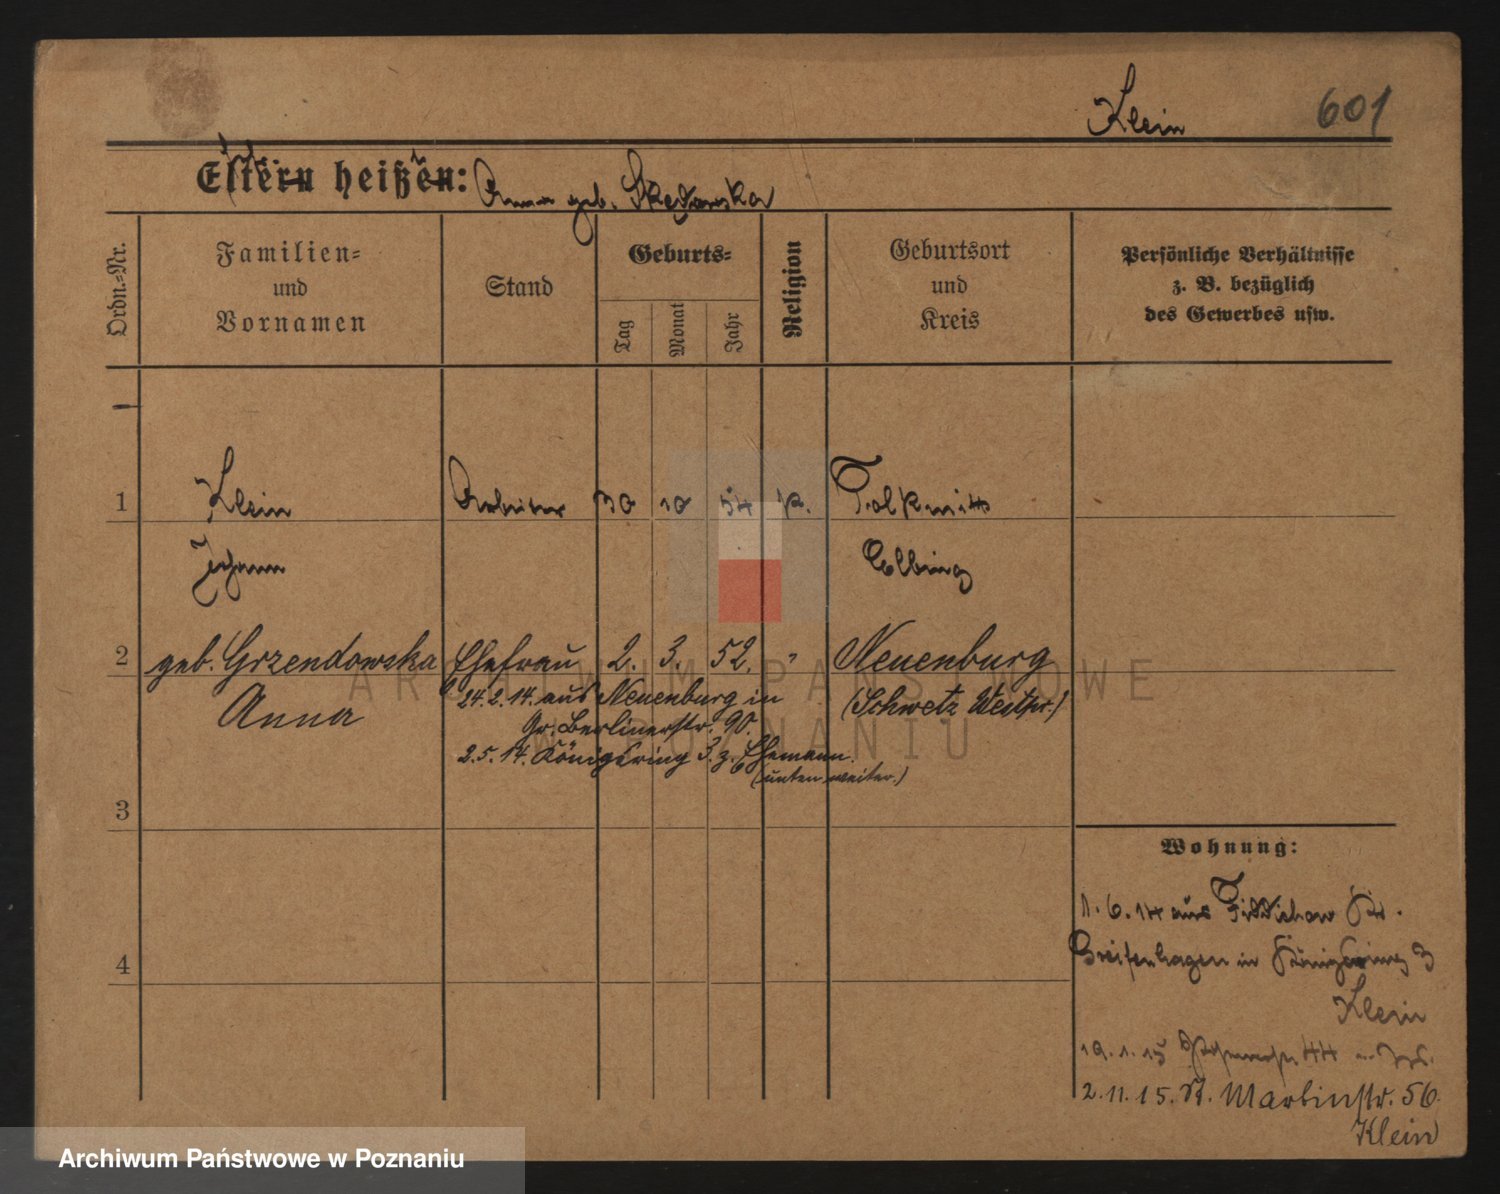 Klein 601
Eltern heißen: Anna geb.
Ordn.-Nr.
Familien-
und
Vornamen
Stand
Geburts-
Tag
Monat
Jahr
Religion
Geburtsort
und
Kreis
Persönliche Verhältnisse
z. B. bezüglich
des Gewerbes usw.
1 Klein Arbeiter 30 10 54 k. Tolkmitt
Johann Elbing
2 geb. Grzendowska Ehefrau 2. 3. 52. " Neuenburg
Anna (Schwetz Westpr.)
24.2.14. aus Neuenburg in
Gr. Berlinerstr. 90.
2.5.14. Königsring 3. z. Ehemann.
(unten weiter.)
3
Wohnung:
1.6.14 aus Fiddichow Kr.
4 Greifenhagen in Königsring 3
Klein
19.1.15 44
2.11.15. St. Martinstr. 56.
Klein
ARCHIWUM PAŃSTWOWE
W POZNANIU
Archiwum Państwowe w Poznaniu